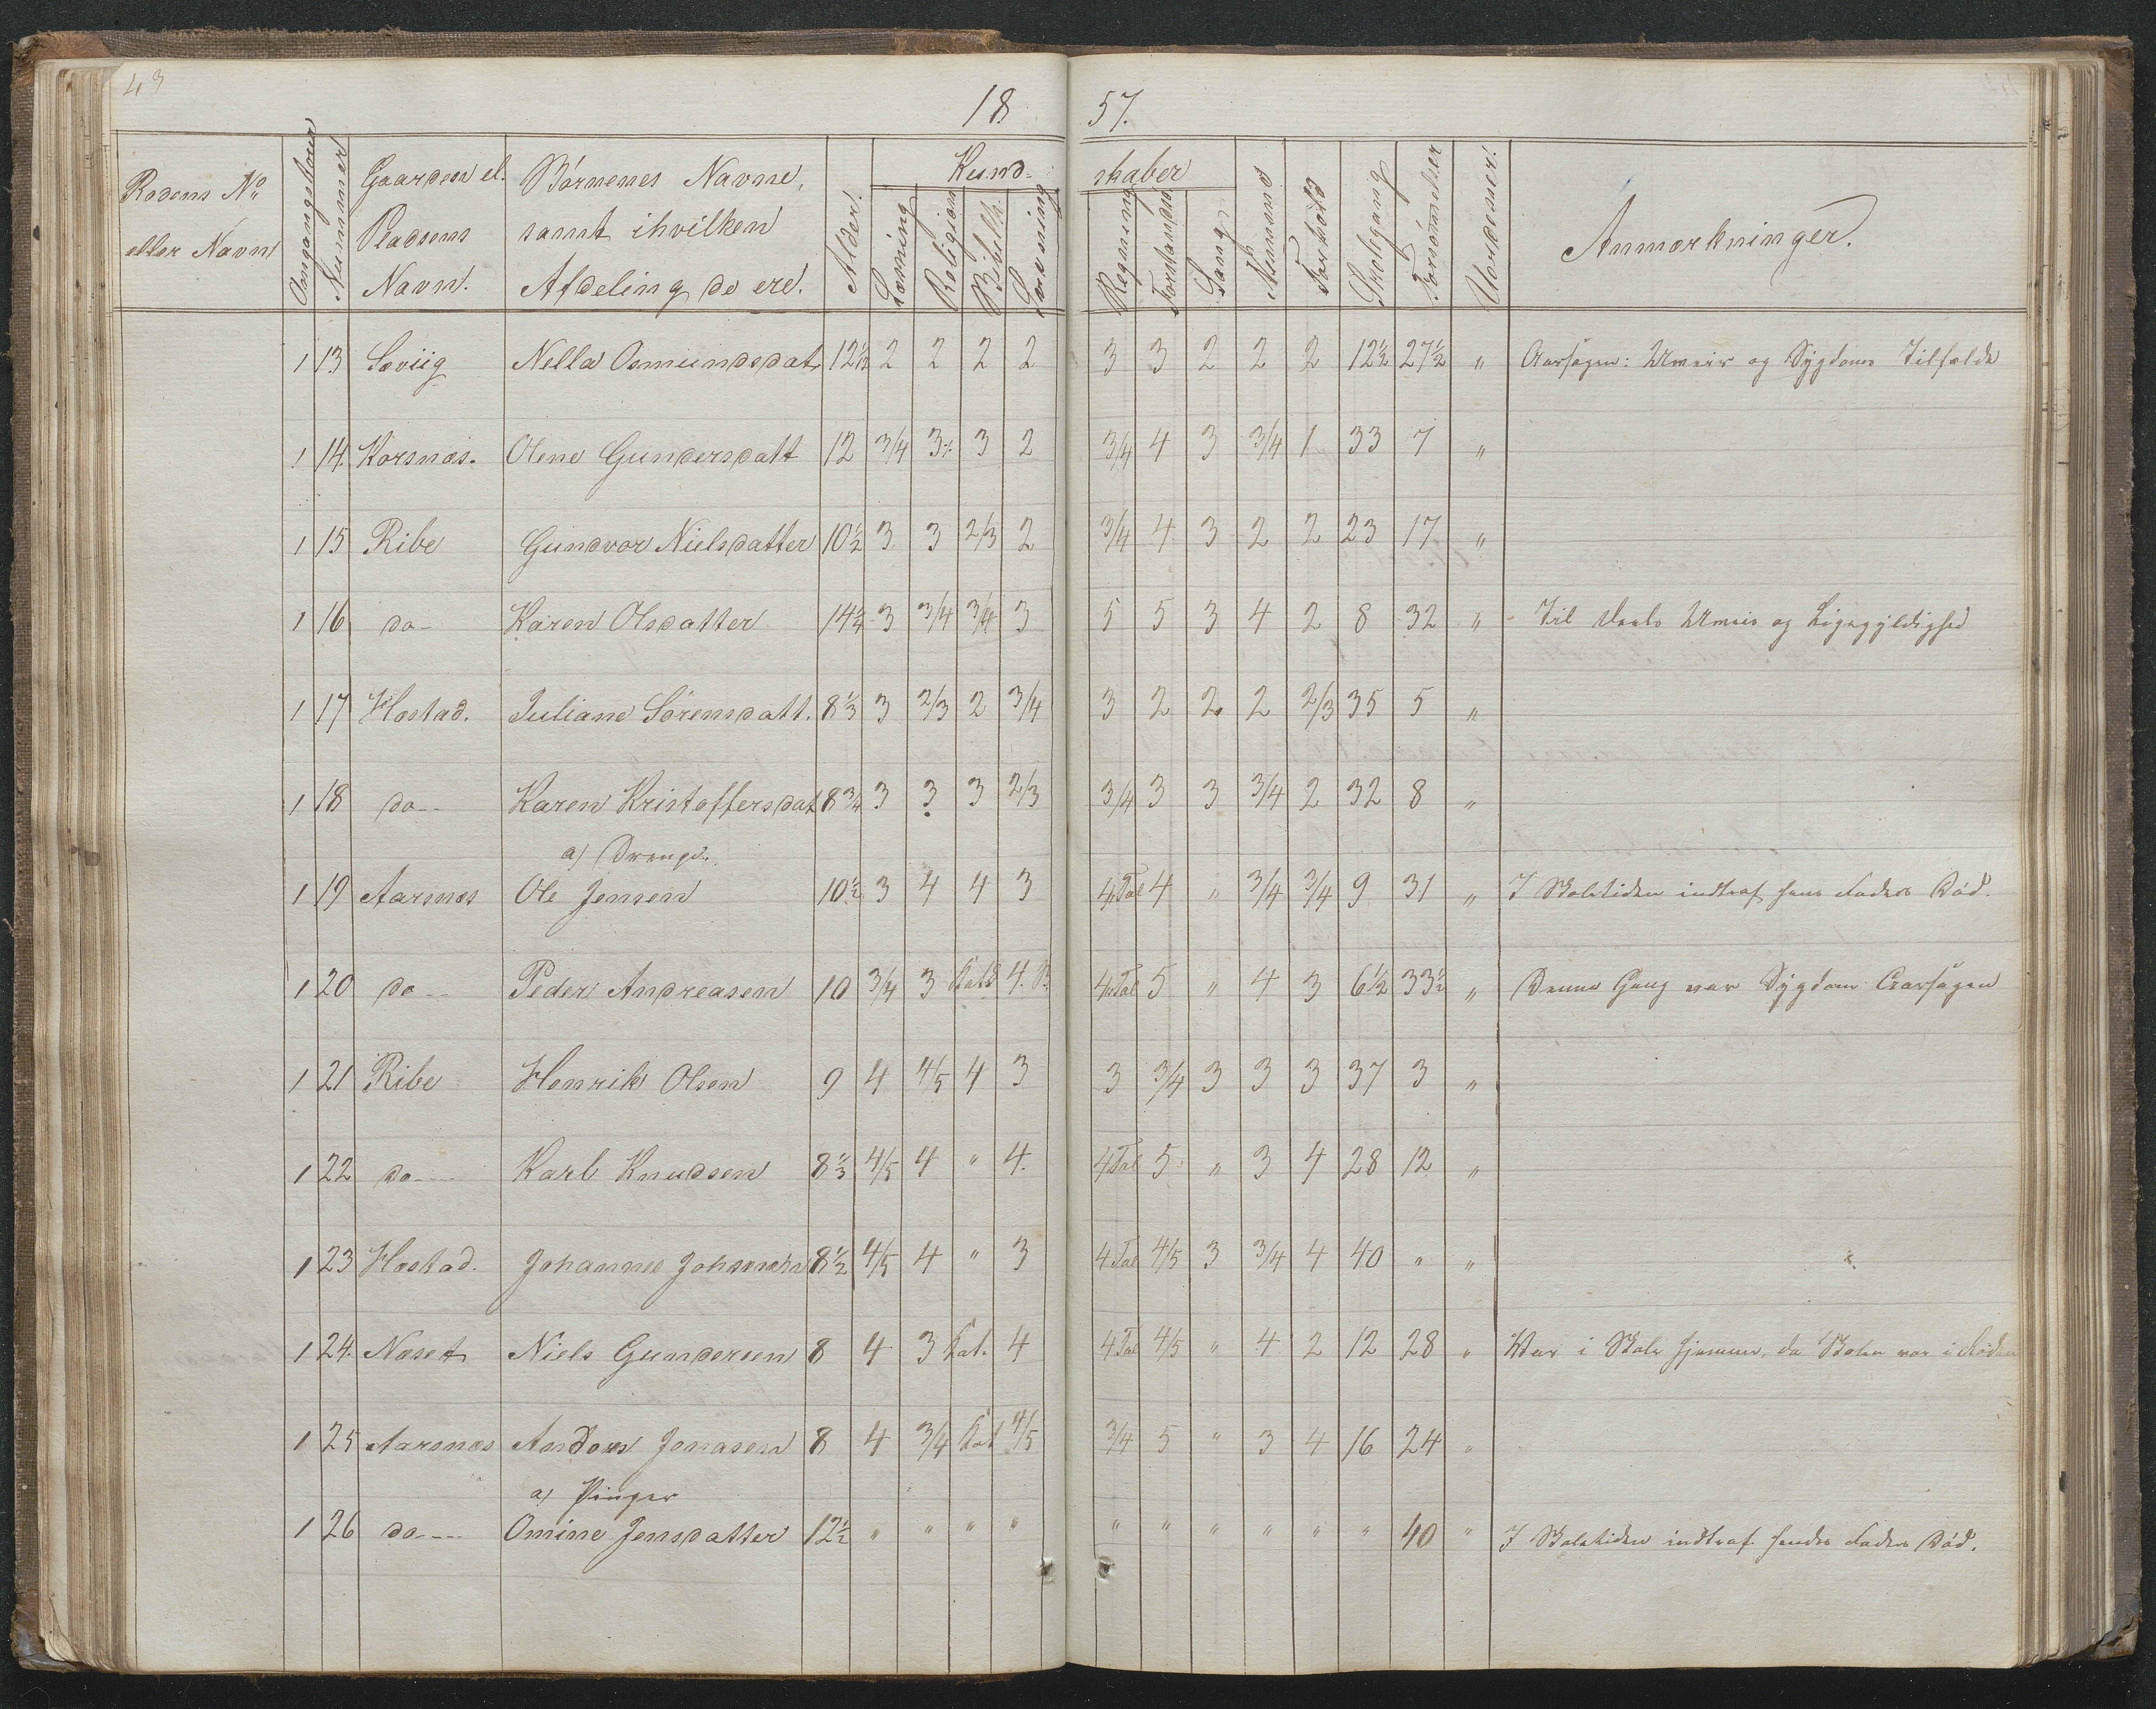 43
18 57.
Rodens No eller Navn | Omgangstouren | Nummer | Gaarden el. Pladsens Navn. | Börnenes Navne, samt ihvilken Afdeling de ere. | Alder. | Kundskaber | Læsning | Religion | Bibelh. | Skrivning | Regning | Forstandsö | Sang | Nemme | Forhold | Skolegang | Forsömmelser | Anmærkninger.
1 13 Søviig Nella Osmundsdat. 12½ 2 2 2 2 3 3 2 2 2 12½ 27½ " Aarsagen: Umeir og Sygdoms Tilfælde
1 14. Korsnæs. Olene Gundersdatt 12 3/4 3 3 2 3/4 4 3 3/4 1 33 7 "
1 15 Ribe Gundvor Nielsdatter 10½ 3 3 2/3 2 3/4 4 3 2 2 23 17 "
1 16 do- Karen Olsdatter 14¼ 3 3/4 3/4 3 5 5 3 4 2 8 32 " Til Deels Umeir og Ligegyldighed
1 17 Høstad. Juliane Sörensdatt. 8⅓ 3 2/3 2 3/4 3 2 2 2 2/3 35 5 "
1 18 do-- Karen Kristoffersdat 8¾ 3 3 3 2/3 3/4 3 3 3/4 2 32 8 "
a) Drenge.
1 19 Aarsnæs Ole Jensen 10½ 3 4 4 3 4.Tal 4 " 3/4 3/4 9 31 " I Skoletiden indtraf hans Faders Död.
1 20 do-- Peder Andreasen 10 3/4 3 4. 4.Tal 5 " 4 3 6½ 33½ " Denne Gang var Sygdom Aarsagen
1 21 Ribe Henrik Olsen 9 4 4/5 4 3 3 3/4 3 3 3 37 3 "
1 22 do--- Karl Knudsen 8⅓ 4/5 4 " 4. 4.Tal 5 " 3 4 28 12 "
1 23 Høstad. Johannes 8½ 4/5 4 " 3 4 Tal 4/5 3 3/4 4 40 " "
1 24. Næset Niels Gundersen 8 4 3 Kat. 4 4 Tal 4/5 " 4 2 12 28 " Var i Skole hjemme, da Skolen var i Roden
1 25 Aarsnæs Anders Jonasen 8 4 3/4 Kat 4/5 3/4 5 " 3 4 16 24 "
a) Piger
1 26 do--- Omine Jensdatter 12½ " " " " " " " " " " 40 " I Skoletiden indtraf hendes Faders Död.